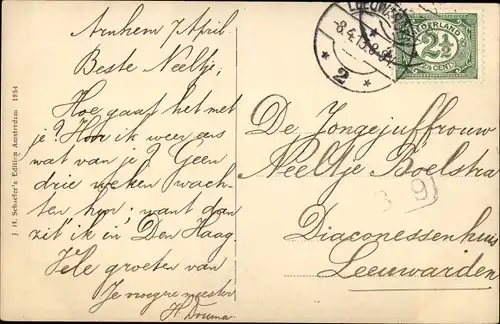 Arnhem 7 April
Beste Neeltje;
Hoe gaat het met
je? Hoor ik weer eens
wat van je? Geen
drie weken wach-
ten hoor; want dan
zit ik in Den Haag.
Vele groeten van
Je vroegre meester
H Douma
J. H. Schaefer's Edition Amsterdam 1854
LEEUWARDEN
2
NEDERLAND
2½
CENT
De Jongejuffrouw
Neeltje Boelstra
Diaconessenhuis
Leeuwarden